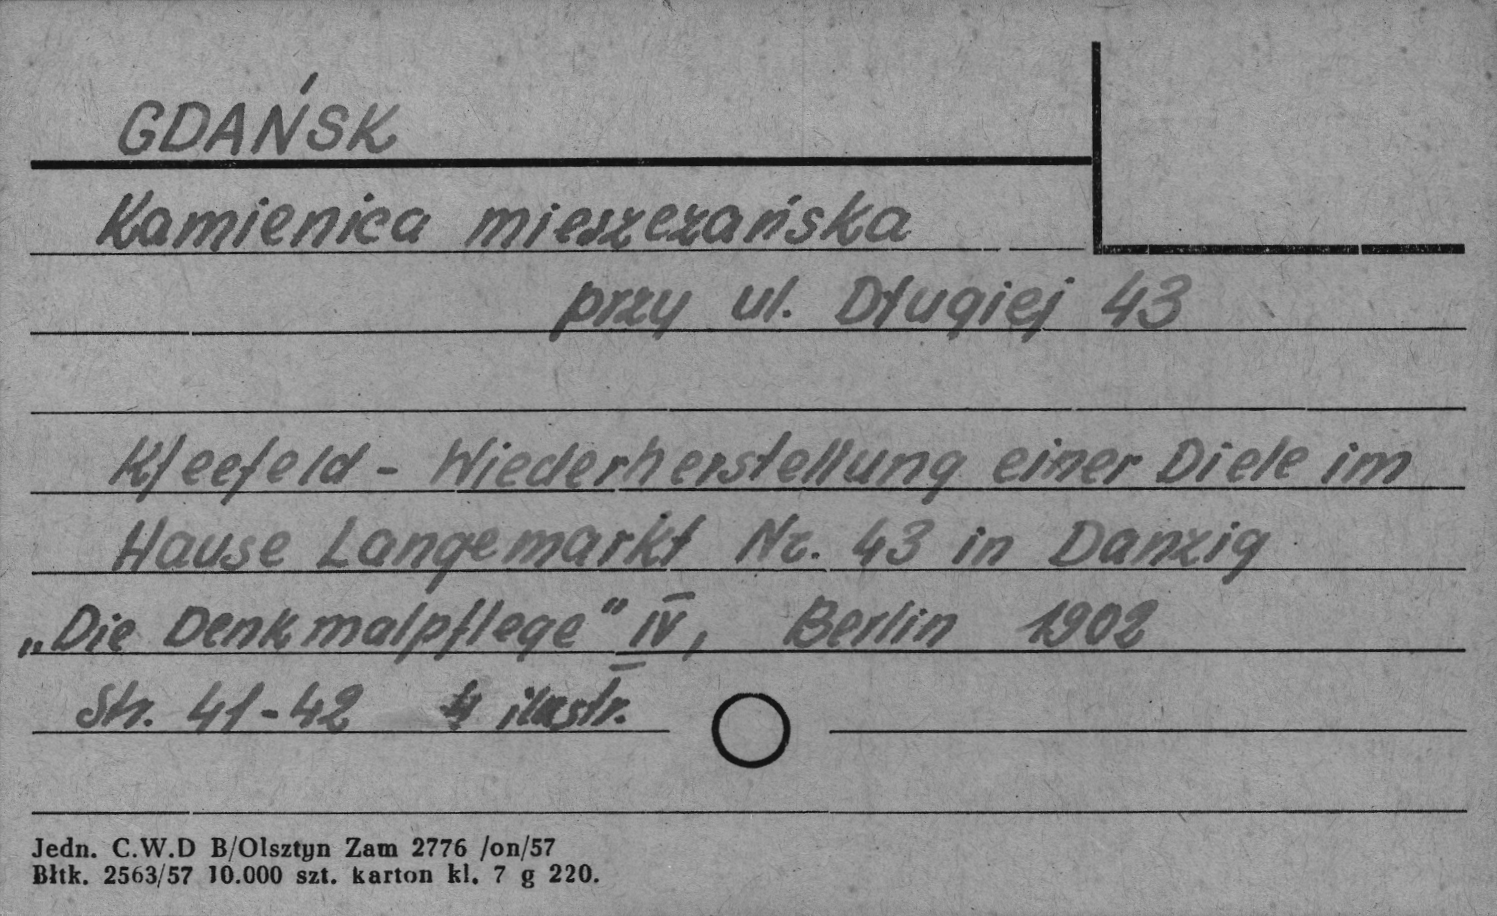 GDAŃSK
Kamienica mieszczańska
przy ul. Długiej 43
Kleefeld - Wiederherstellung einer Diele im
Hause Langemarkt Nr. 43 in Danzig
„Die Denkmalpflege" IV, Berlin 1902
Str. 41-42 4 ilustr.
Jedn. C.W.D B/Olsztyn Zam 2776 /on/57
Błtk. 2563/57 10.000 szt. karton kl. 7 g 220.